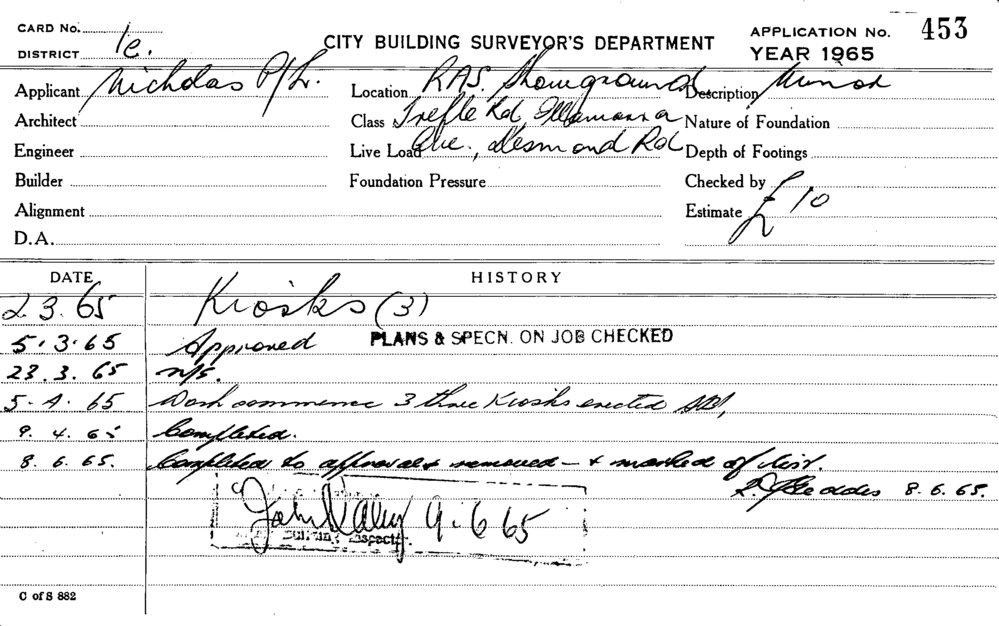 CARD No. APPLICATION No. 453
DISTRICT 1c. CITY BUILDING SURVEYOR'S DEPARTMENT YEAR 1965
Applicant Nicholas P/L. Location RAS. Showground Description Minor
Architect Class Trefle Rd, Illawarra Nature of Foundation
Engineer Live Load Ave., Desmond Rd Depth of Footings
Builder Foundation Pressure Checked by
Alignment Estimate £10
D.A.
DATE HISTORY
2.3.65 Kiosks (3)
5.3.65 Approved PLANS & SPECN. ON JOB CHECKED
23.3.65 n/s.
5.4.65 Work commence 3 three Kiosks erected
9.4.65 Completed.
8.6.65. Completed to approval & removed — & marked of list.
Geddes 8.6.65.
John 9.6.65
Building Inspector.
C of S 882